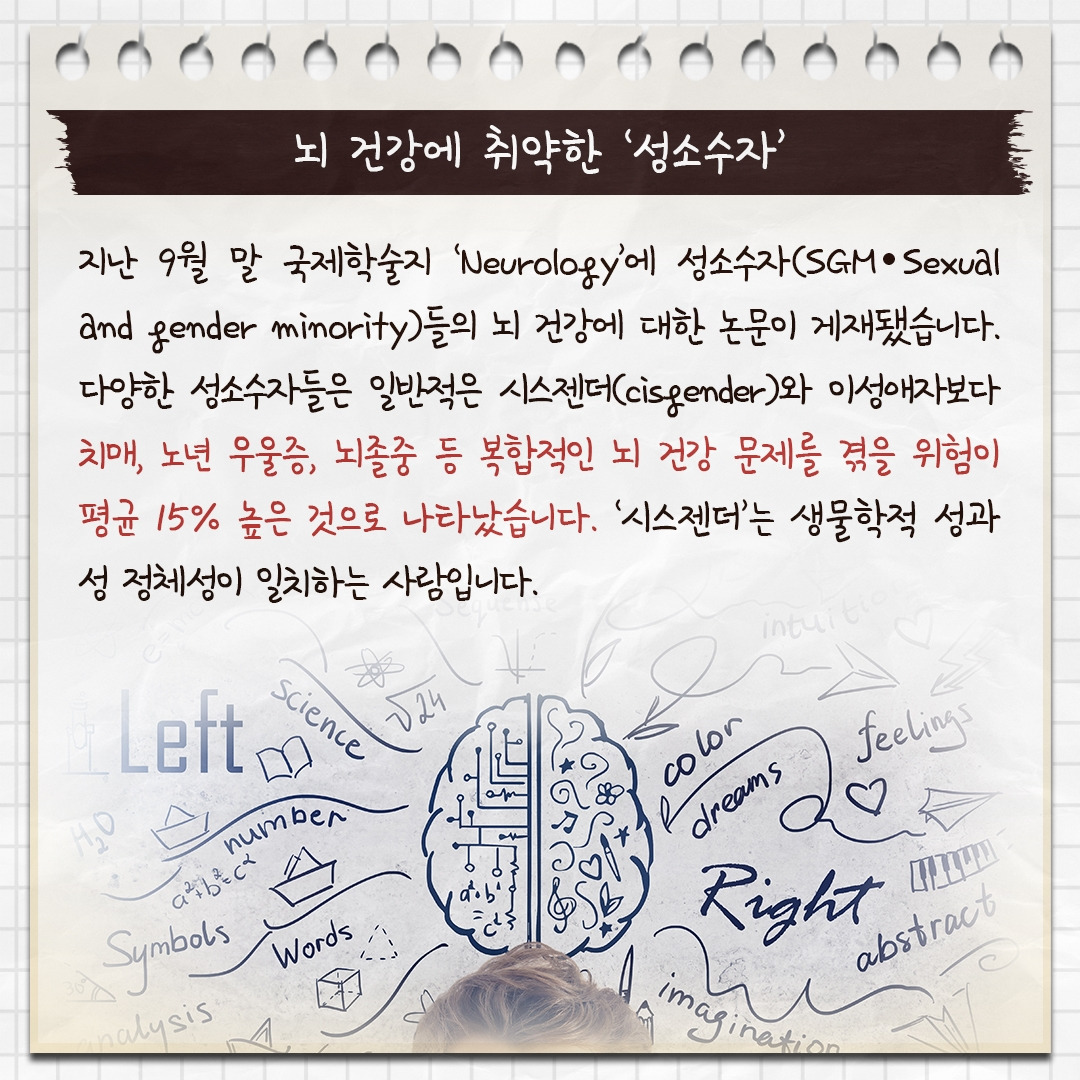 뇌 건강에 취약한 ‘성소수자’
지난 9월 말 국제학술지 ‘Neurology’에 성소수자(SGM•Sexual
and gender minority)들의 뇌 건강에 대한 논문이 게재됐습니다.
다양한 성소수자들은 일반적은 시스젠더(cisgender)와 이성애자보다
치매, 노년 우울증, 뇌졸중 등 복합적인 뇌 건강 문제를 겪을 위험이
평균 15% 높은 것으로 나타났습니다. ‘시스젠더’는 생물학적 성과
성 정체성이 일치하는 사람입니다.
Sequense
intuition
Left
science
√24
color
feelings
dreams
H2O
number
a²+b²=c²
a²+b²
=c²
Right
Symbols
Words
abstract
analysis
imagination